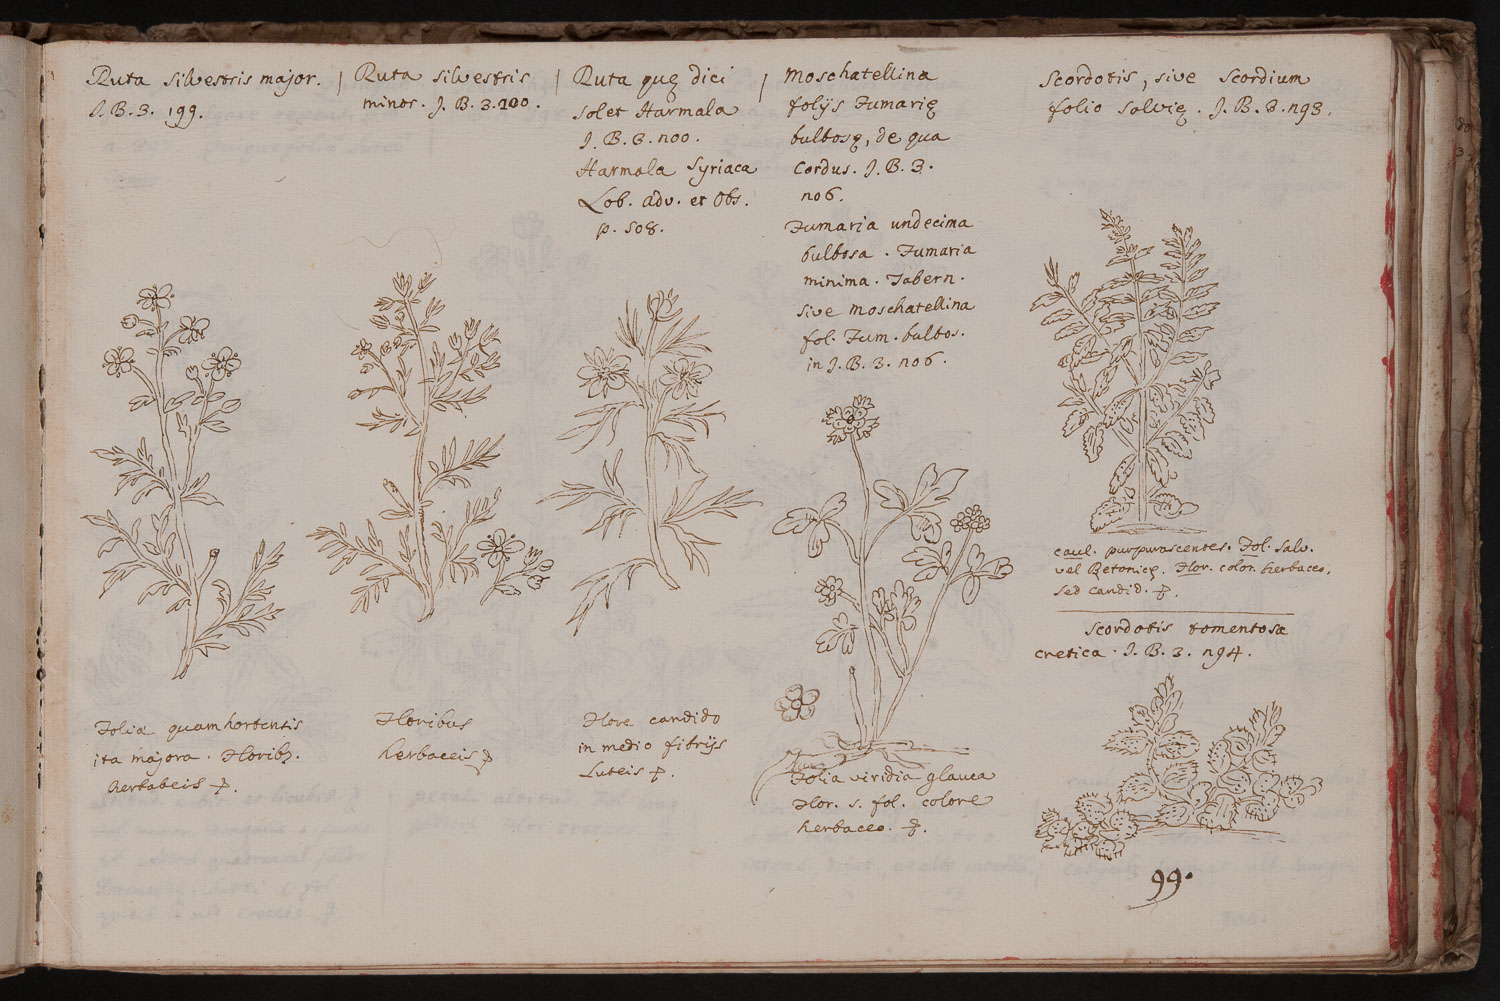 Ruta silvestris major.
J. B. 3. 199.
Ruta silvestris
minor. J. B. 3. 200.
Ruta quę dici
solet Harmala
J. B. 3. n00.
Harmala Syriaca
Lob. adv. et Obs.
p. 508.
Moschatellina
folijs Fumarię
bulbosę, de qua
Cordus. J. B. 3.
no6.
Fumaria undecima
bulbosa. Fumaria
minima. Tabern.
sive Moschatellina
fol. Fum. bulbos.
in J. B. 3. no6.
Scordotis, sive Scordium
folio salvię. J. B. 3. n93.
Folia quam hortensis
ita majora. Florib.
herbabeis
Floribus
herbaceis
Flore candido
in medio fibrijs
Luteis
Folia viridia glauca
Flor. s. fol. colore
herbaceo.
caul. purpurascentes. Fol. Salv.
vel Betonicę. Flor. color. herbaceo,
sed candid.
Scordotis tomentosa
cretica. J. B. 3. n94.
99.